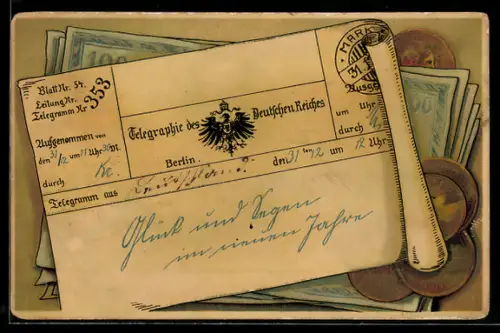 Blatt Nr. 54.
Leitung Nr.
Telegramm Nr. 353
Aufgenommen von
den 31/12 um 11 Uhr 30 Mt.
durch
Telegraphie des Deutschen Reiches
Berlin.
Telegramm aus
den 31ten 12 um 12 Uhr
um Uhr
durch
MARK
31
100
Glück und Segen
im neuen Jahre